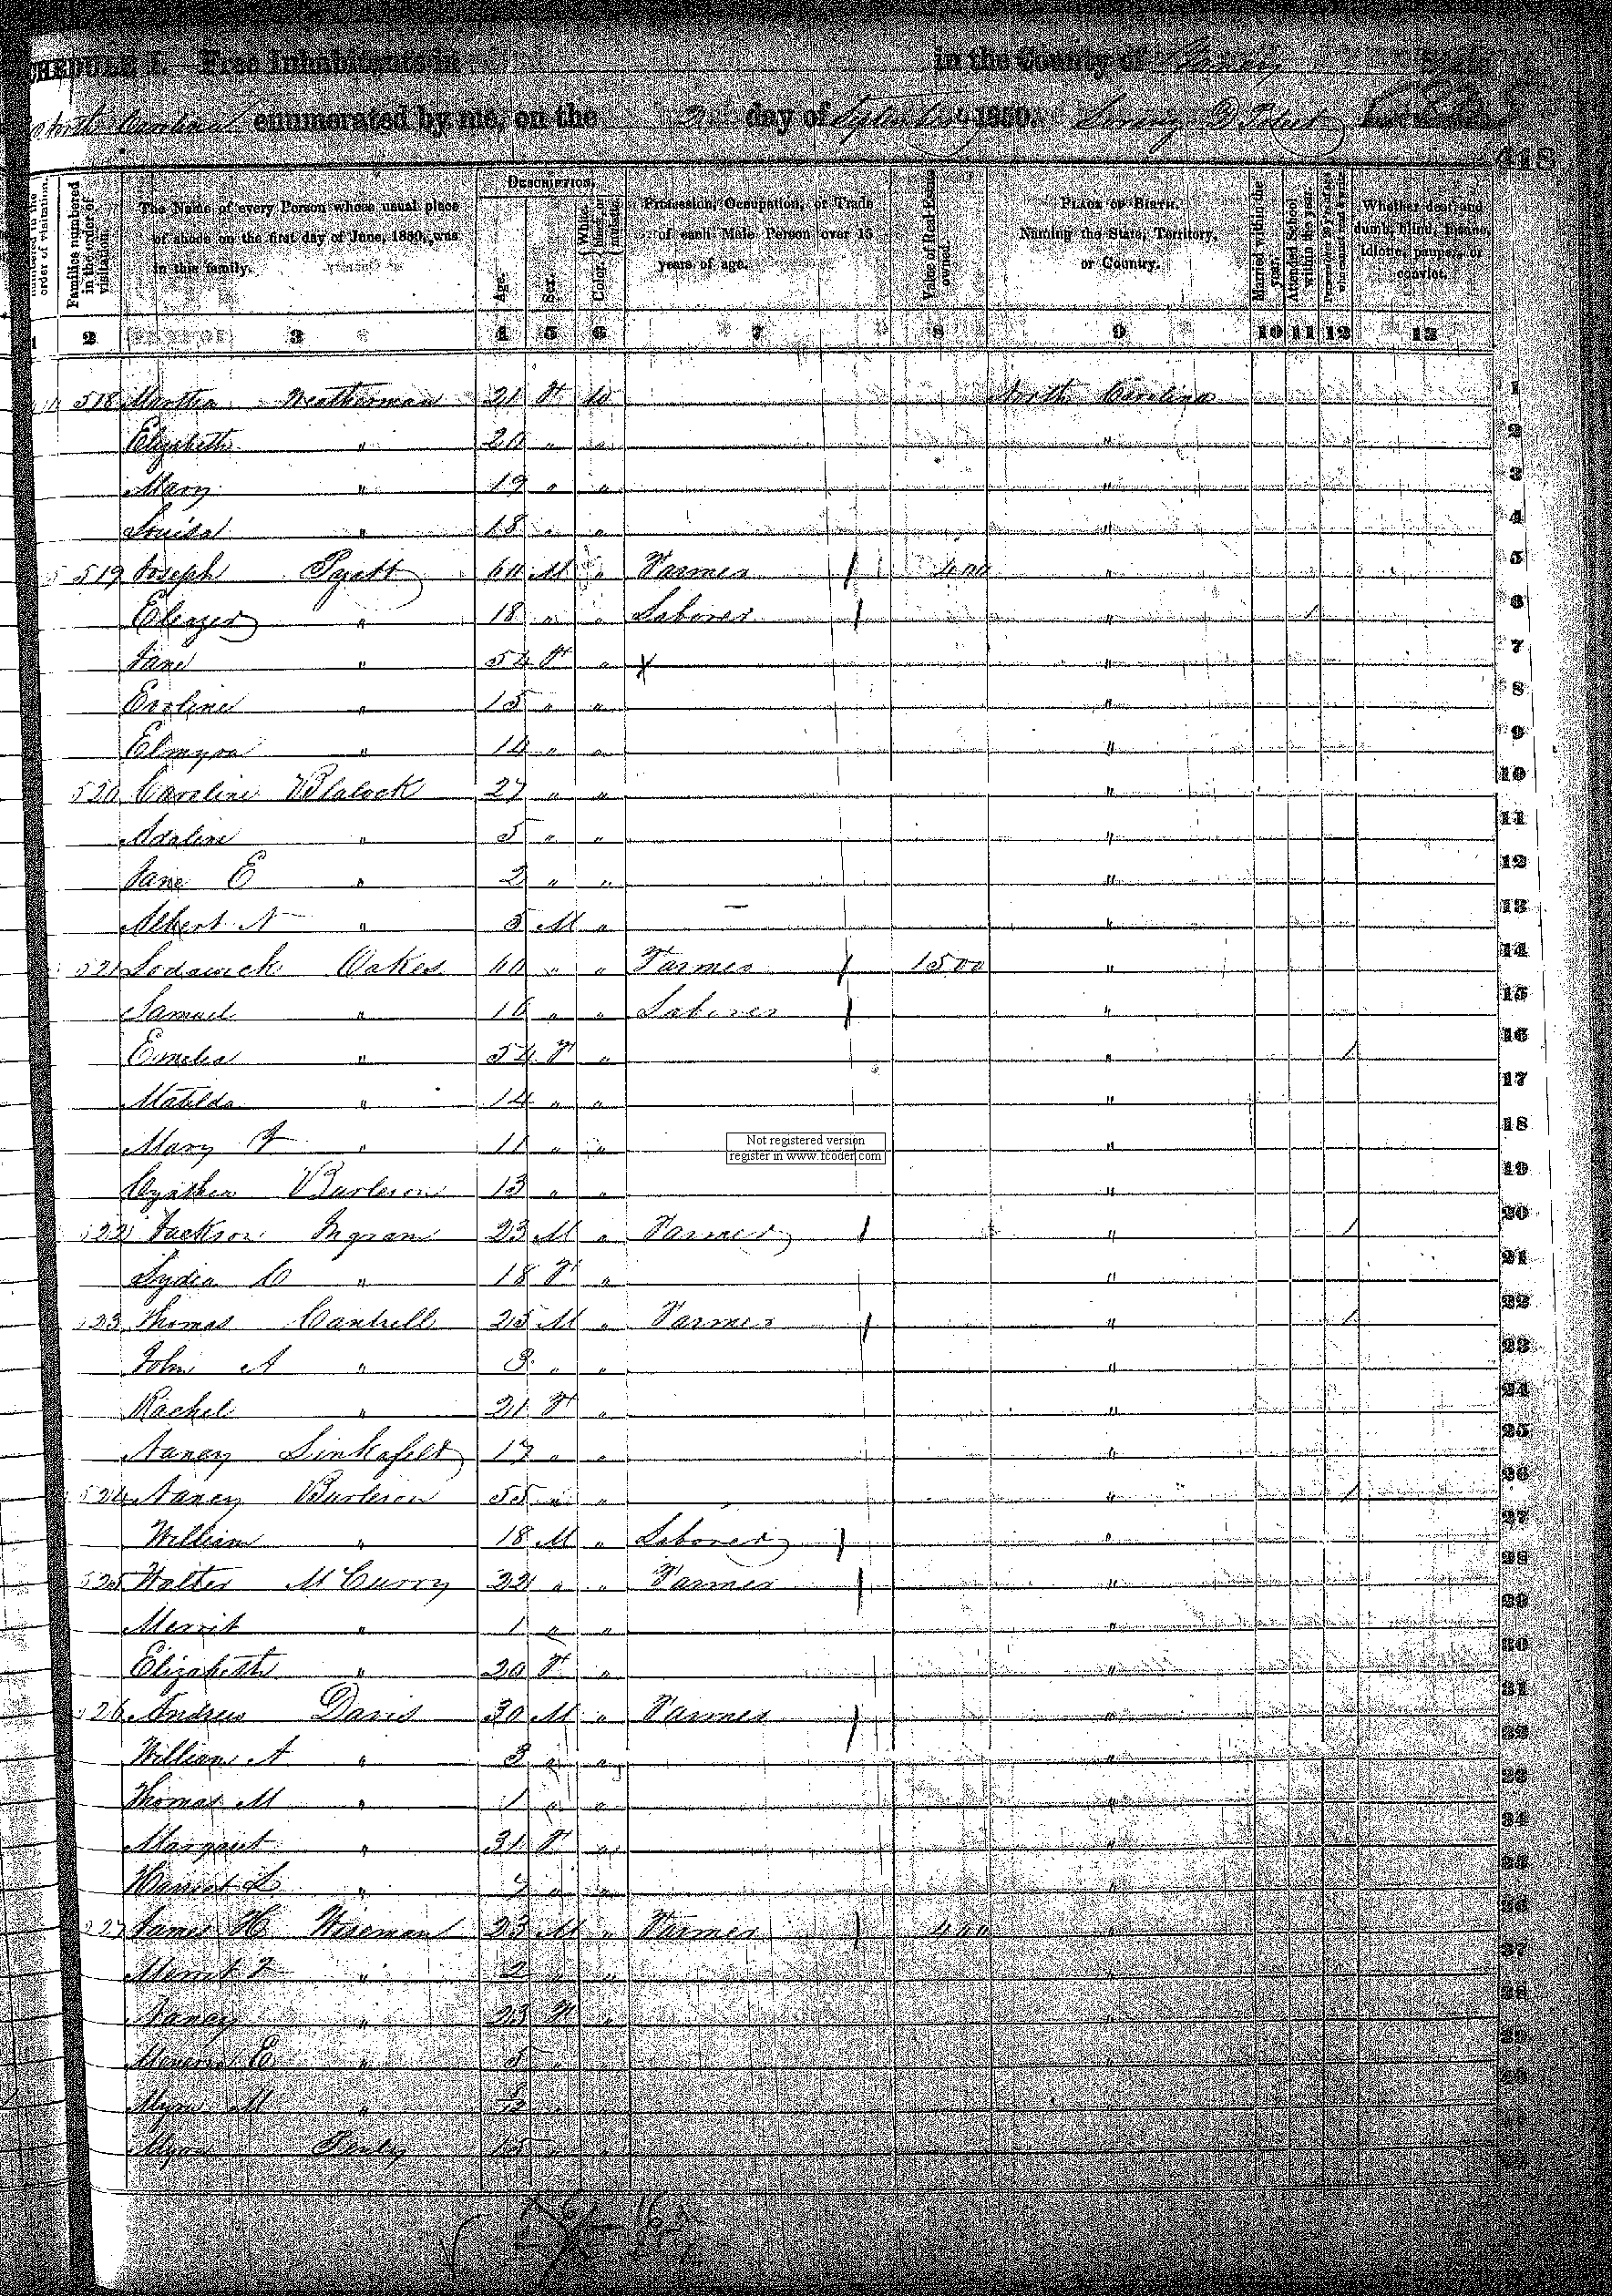 SCHEDULE I.—Free Inhabitants in in the County of Yancey State
North Carolina enumerated by me, on the 2 day of September 1850.
418
DESCRIPTION.
Families numbered in the order of visitation.
The Name of every Person whose usual place of abode on the first day of June, 1850, was in this family.
Age.
Sex.
Color. { White, black, or mulatto.
Profession, Occupation, or Trade of each Male Person over 15 years of age.
Value of Real Estate owned.
PLACE OF BIRTH. Naming the State, Territory, or Country.
Married within the year.
Attended School within the year.
Whether deaf and dumb, blind, insane, idiotic, pauper, or convict.
1 2 3 4 5 6 7 8 9 10 11 12 13
518 Martha Weatherman 21 F W North Carolina 1
Elizabeth " 20 " " " 2
Mary " 19 " " " 3
Louisa " 18 " " " 4
519 Joseph Pyatt 60 M " Farmer 400 " 5
Eleazer " 18 " " Laborer " 1 6
Jane " 54 F " " 7
Evoline " 15 " " " 8
Elmyra " 14 " " " 9
520 Caroline Blalock 27 " " " 10
Adaline " 5 " " " 11
Jane E " 2 " " " 12
Albert N " 5 M " " 13
521 Lodawick Oakes 60 " " Farmer 1500 " 14
Samuel " 16 " " Laborer " 15
Emelia " 54 F " " 1 16
Matilda " 14 " " " 17
Mary F " 11 " " " 18
Not registered version
register in www.tcoder.com
Cynthia Burleson 13 " " " 19
522 Jackson Ingram 23 M " Farmer " 1 20
Lydia C " 18 F " " 21
523 Thomas Cantrell 25 M " Farmer " 1 22
John A " 3 " " 23
Rachel " 21 F " " 24
Nancy Linkafelt 17 " " " 25
524 Nancy Burleson 55 " " " 1 26
William " 18 M " Laborer " 27
525 Walter McCurry 22 " " Farmer " 28
Merrit " 1 " " " 29
Elizabeth " 20 F " " 30
526 Andrew Davis 30 M " Farmer " 31
William A " 3 " " " 32
Thomas M " 1 " " " 33
Margaret " 31 F " " 34
Harriet L " 7 " " " 35
527 James H Wiseman 23 M " Farmer 400 " 36
Merrit F " 2 " " " 37
Nancy " 23 F " " 38
E " 5 " " " 39
Myra M "
15 " "